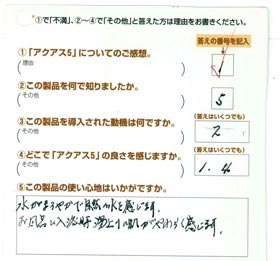 ①で「不満」、②～④で「その他」と答えた方は理由をお書きください。
答えの番号を記入
①「アクアス5」についてのご感想。
理由
②この製品を何で知りましたか。
その他
5
③この製品を導入された動機は何ですか。
(答えはいくつでも)
その他
2
④どこで「アクアス5」の良さを感じますか。
(答えはいくつでも)
その他
1.4
⑤この製品の使い心地はいかがですか。
水がまろやかで自然の水を感じます。
お風呂に入浴時 湯上りの肌がやわらかく感じます。